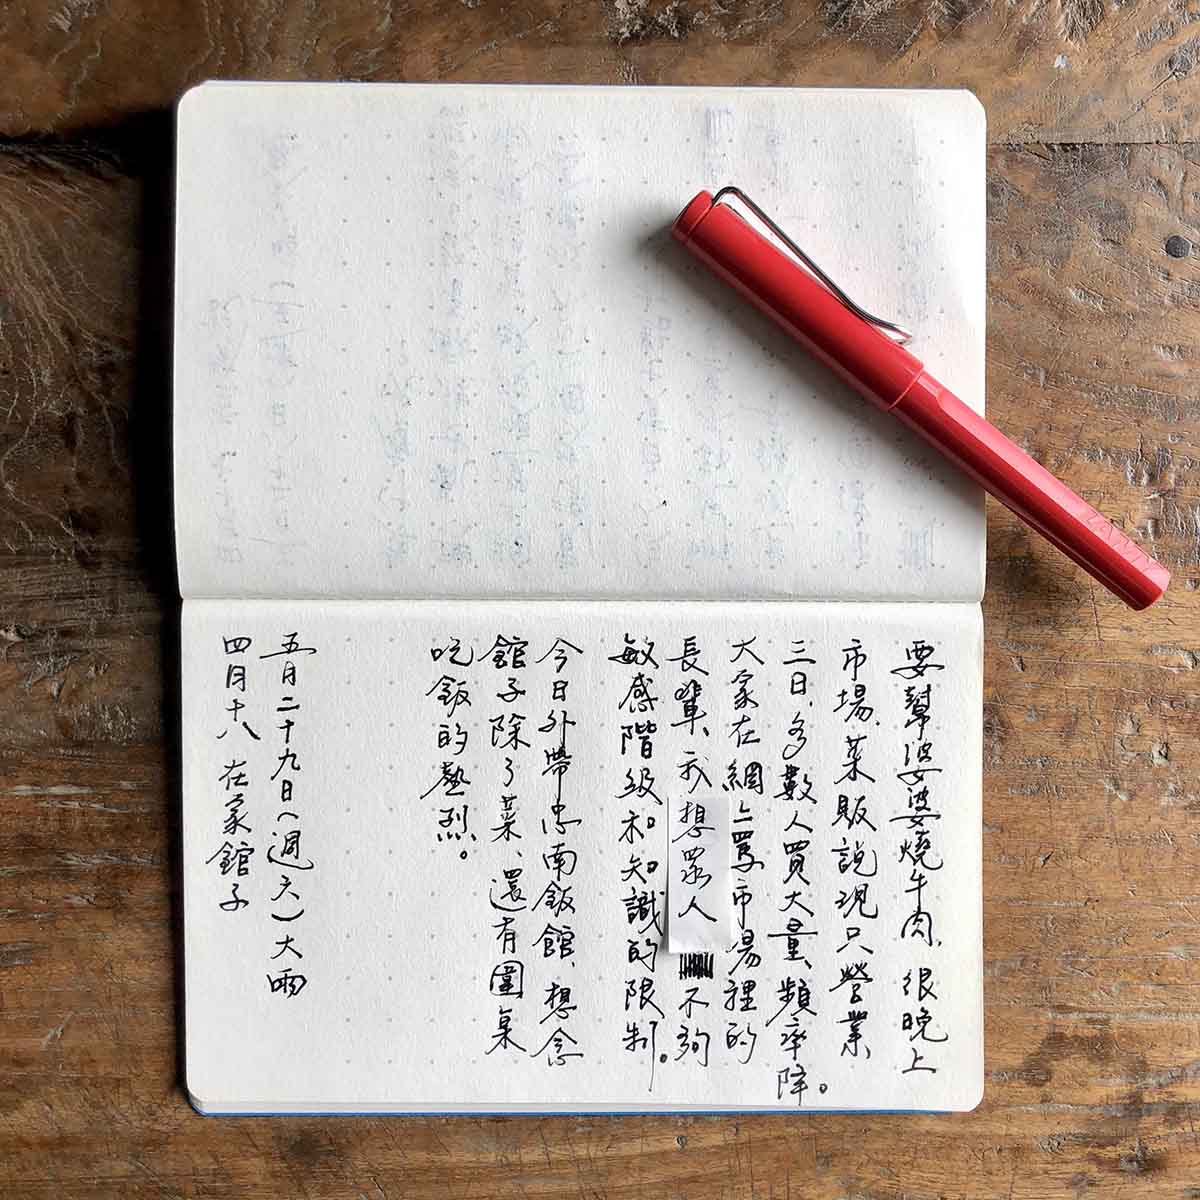 要幫婆婆燒牛肉、很晚上
市場、菜販說現只營業
三日、多數人買大量、頻率降。
大家在網上罵市場裡的
長輩、我想眾人不夠
敏感階級和知識的限制。
今日外帶忠南飯館、想念
館子除了菜、還有圍桌
吃飯的熱烈。
五月二十九日（週六）大雨
四月十八 在家館子
LAMY